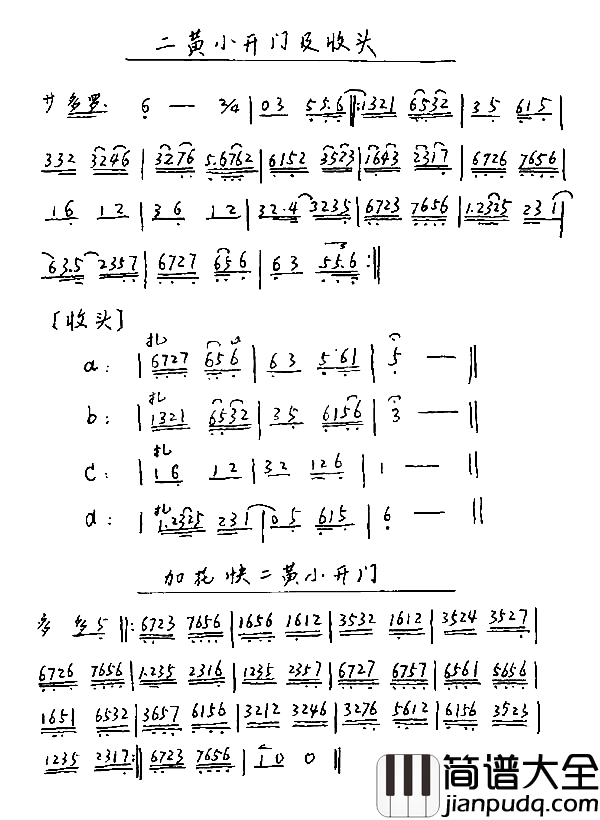 二黄小开门及收头
サ 多罗. 6 — 3/4 | 0 3 5 5.6 ‖: 1321 6532 | 3 5 6 1 5 |
332 3246 | 3276 5.6762 | 6152 3523 | 1643 2317 | 6726 7656 |
1 6 1 2 | 3 6 1 2 | 32.4 3235 | 6723 7656 | 1.2325 231 |
63.5 2357 | 6727 656 | 6 3 5 5.6 :‖
[收头]
a: | 扎 6727 656 | 6 3 5 61 | 5 — ‖
b: | 扎 1321 6532 | 35 6156 | 3 — ‖
c: | 扎 16 12 | 32 126 | 1 — ‖
d: | 扎 1.2325 231 | 0 5 615 | 6 — ‖
加花快二黄小开门
多 多 5 ‖: 6723 7656 | 1656 1612 | 3532 1612 | 3524 3527 |
6726 7656 | 1.235 2316 | 1235 2357 | 6727 6757 | 6561 5656 |
1651 6532 | 3657 6156 | 3212 3246 | 3276 5612 | 6156 3523 |
1235 2317 :‖ 6723 7656 | 1 0 0 ‖
简谱大全
jianpudq.com